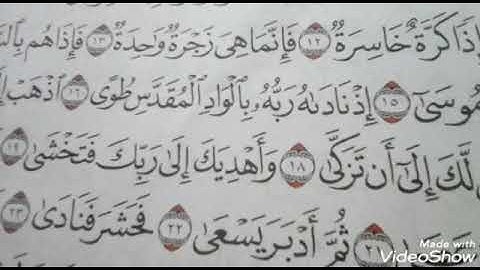 إِذًا كَرَّةٌ خَاسِرَةٌ ١٢ فَإِنَّمَا هِيَ زَجْرَةٌ وَٰحِدَةٌ ١٣ فَإِذَا هُم
مُوسَىٰٓ ١٥ إِذْ نَادَىٰهُ رَبُّهُۥ بِٱلْوَادِ ٱلْمُقَدَّسِ طُوًى ١٦ ٱذْهَبْ
لَّكَ إِلَىٰٓ أَن تَزَكَّىٰ ١٨ وَأَهْدِيَكَ إِلَىٰ رَبِّكَ فَتَخْشَىٰ ١٩
٢١ ثُمَّ أَدْبَرَ يَسْعَىٰ ٢٢ فَحَشَرَ فَنَادَىٰ ٢٣
Made with
VideoShow